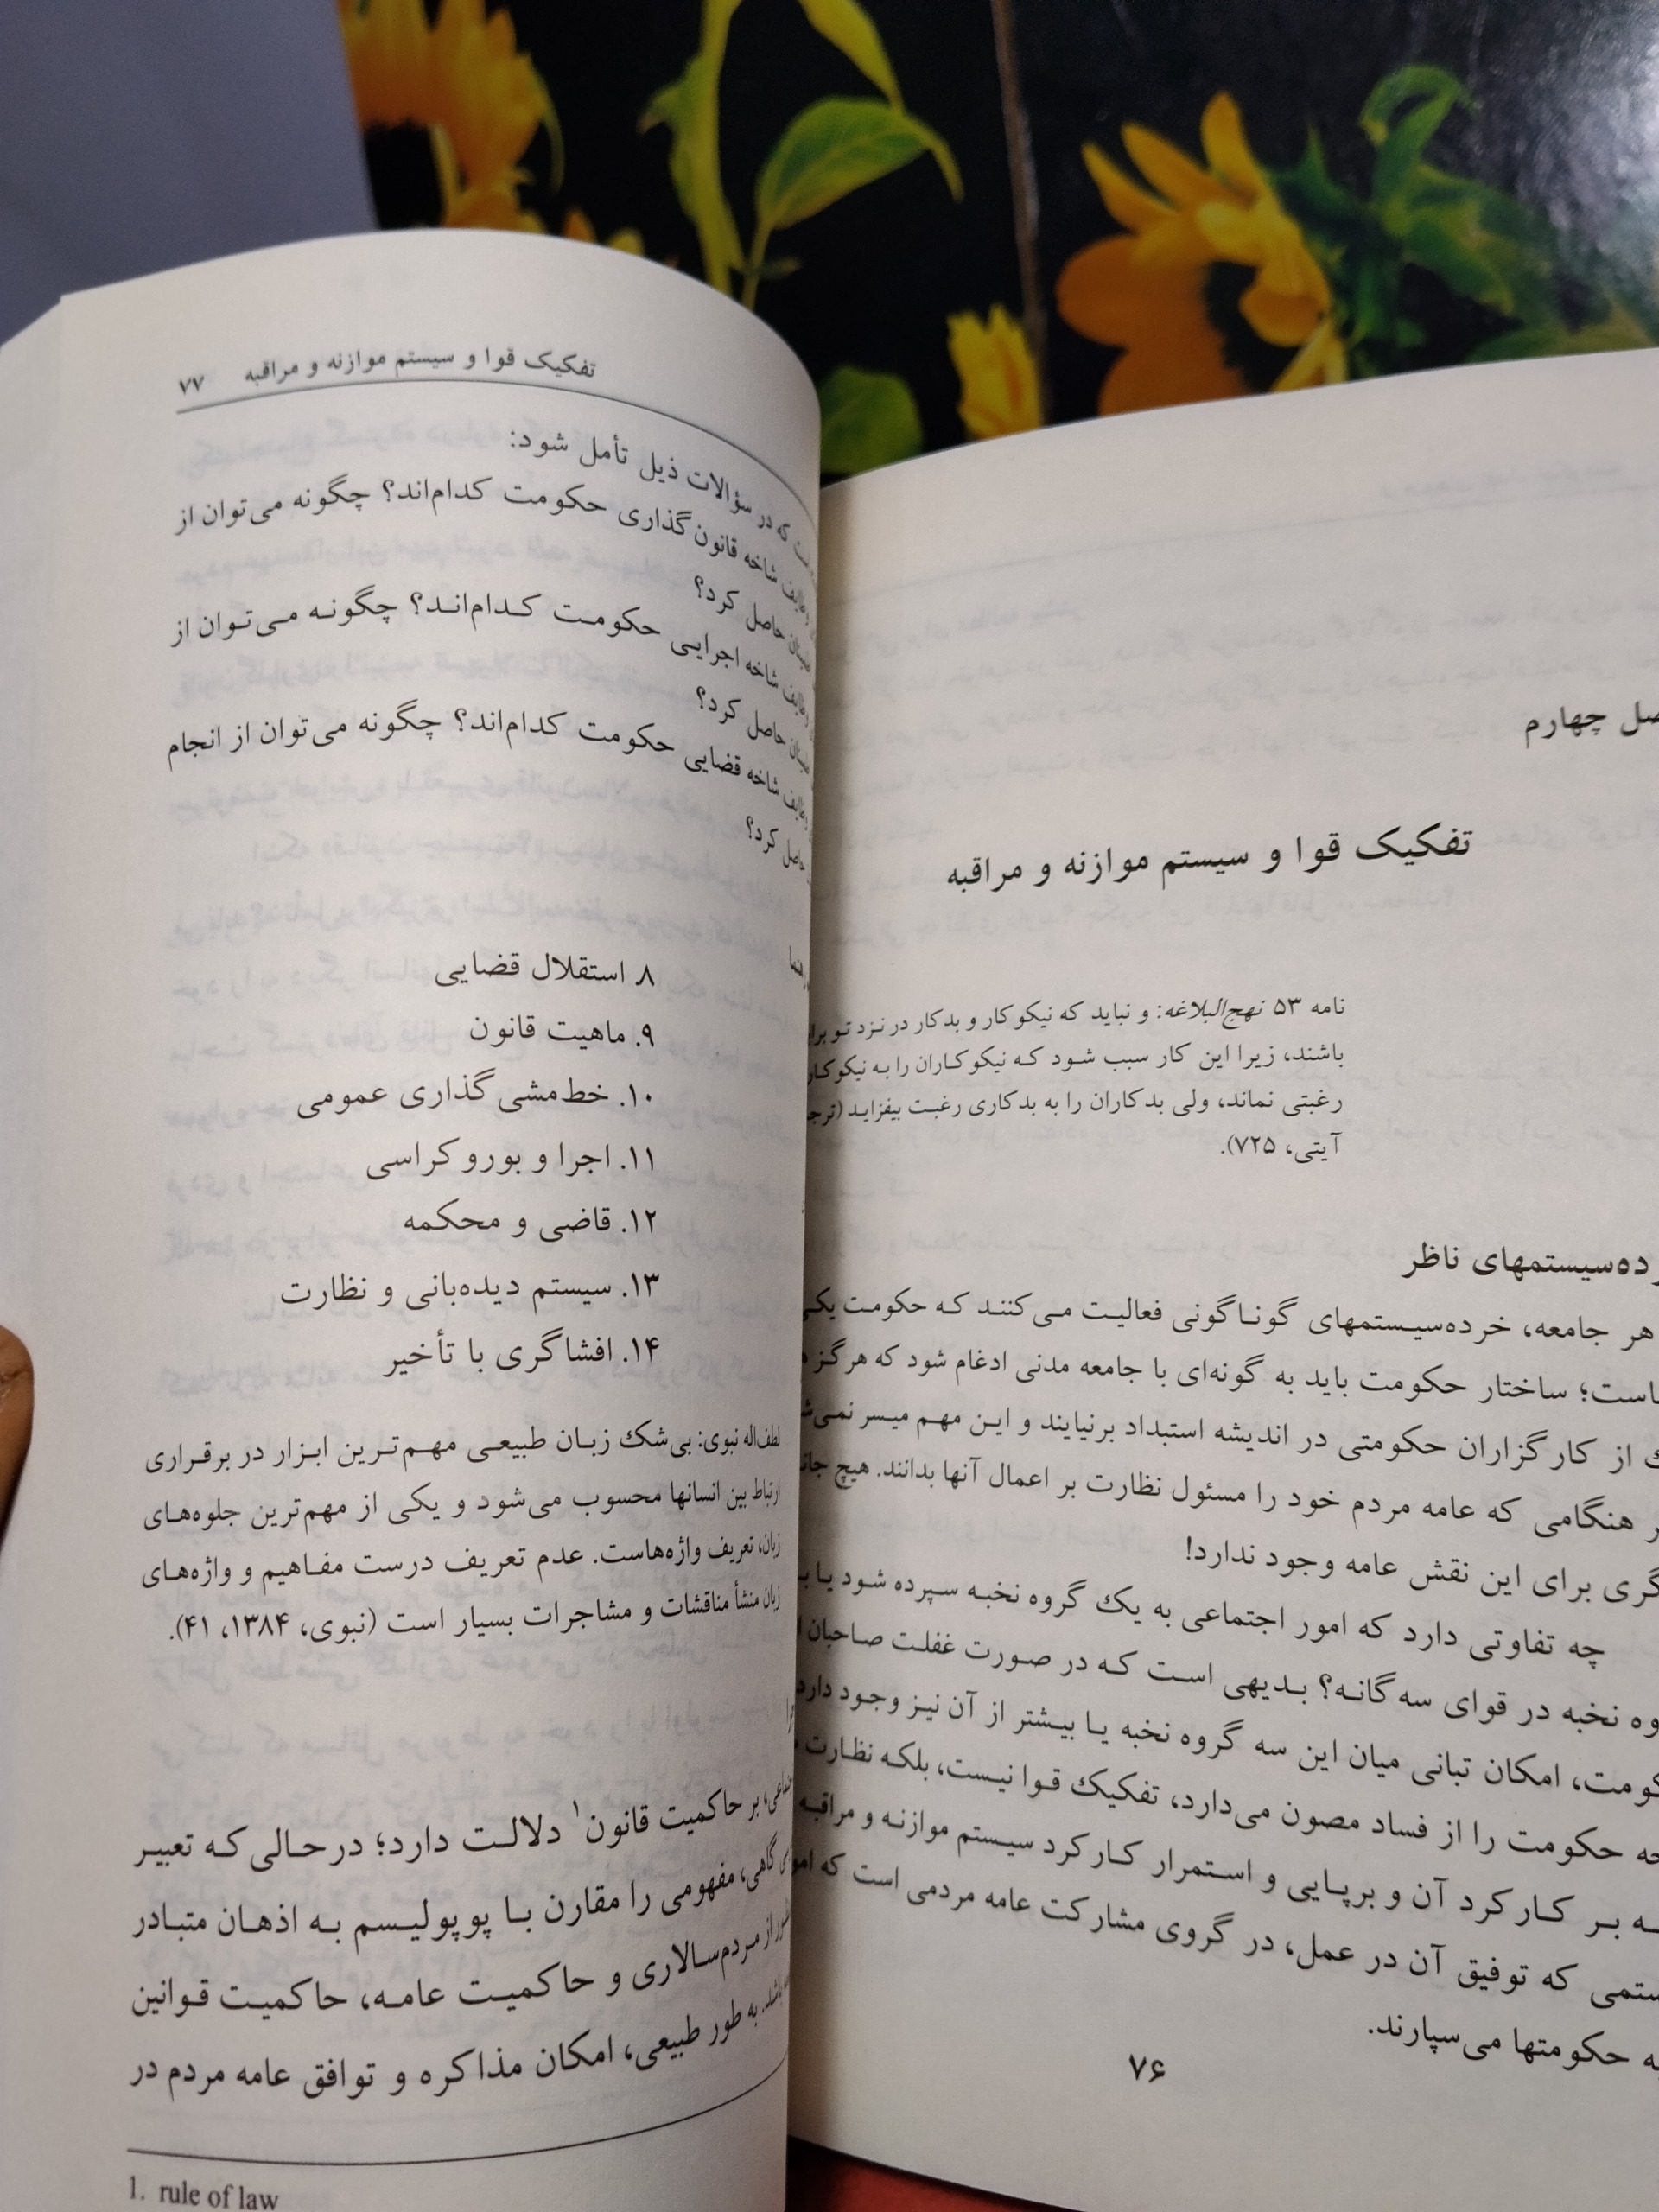 چهارم
تفکیک قوا و سیستم موازنه و مراقبه
نامه ۵۳ نهج‌البلاغه: و نباید که نیکوکار و بدکار در نزد تو
باشند، زیرا این کار سبب شود که نیکوکاران را به
رغبتی نماند، ولی بدکاران را به بدکاری رغبت بیفزاید
آیتی، ۷۲۵).
ناظر
هر جامعه، خرده‌سیستمهای گوناگونی فعالیت می‌کنند که حکومت
ساختار حکومت باید به گونه‌ای با جامعه مدنی ادغام شود که هرگز
از کارگزاران حکومتی در اندیشه استبداد برنیایند و این مهم میسر
هنگامی که عامه مردم خود را مسئول نظارت بر اعمال آنها بدانند. هیچ
برای این نقش عامه وجود ندارد!
چه تفاوتی دارد که امور اجتماعی به یک گروه نخبه سپرده شود یا
نخبه در قوای سه‌گانه؟ بدیهی است که در صورت غفلت صاحبان
امکان تبانی میان این سه گروه نخبه یا بیشتر از آن نیز وجود
حکومت را از فساد مصون می‌دارد، تفکیک قوا نیست، بلکه نظارت
بر کارکرد آن و برپایی و استمرار کارکرد سیستم موازنه و مراقبه
که توفیق آن در عمل، در گروی مشارکت عامه مردمی است که
حکومتها می‌سپارند.
۷۶
تفکیک قوا و سیستم موازنه و مراقبه ۷۷
که در سؤالات ذیل تأمل شود:
شاخه قانون‌گذاری حکومت کدام‌اند؟ چگونه می‌توان از
حاصل کرد؟
شاخه اجرایی حکومت کدام‌اند؟ چگونه می‌توان از
حاصل کرد؟
شاخه قضایی حکومت کدام‌اند؟ چگونه می‌توان از انجام
کرد؟
۸. استقلال قضایی
۹. ماهیت قانون
۱۰. خط‌مشی گذاری عمومی
۱۱. اجرا و بوروکراسی
۱۲. قاضی و محکمه
۱۳. سیستم دیده‌بانی و نظارت
۱۴. افشاگری با تأخیر
لطف‌اله نبوی: بی‌شک زبان طبیعی مهم‌ترین ابزار در برقراری
ارتباط بین انسانها محسوب می‌شود و یکی از مهم‌ترین جلوه‌های
زبان، تعریف واژه‌هاست. عدم تعریف درست مفاهیم و واژه‌های
زبان منشأ مناقشات و مشاجرات بسیار است (نبوی، ۱۳۸۴، ۴۱).
بر حاکمیت قانون۱ دلالت دارد؛ درحالی‌که تعبیر
گاهی، مفهومی را مقارن با پوپولیسم به اذهان متبادر
از مردم‌سالاری و حاکمیت عامه، حاکمیت قوانین
باشد. به طور طبیعی، امکان مذاکره و توافق عامه مردم در
1. rule of law